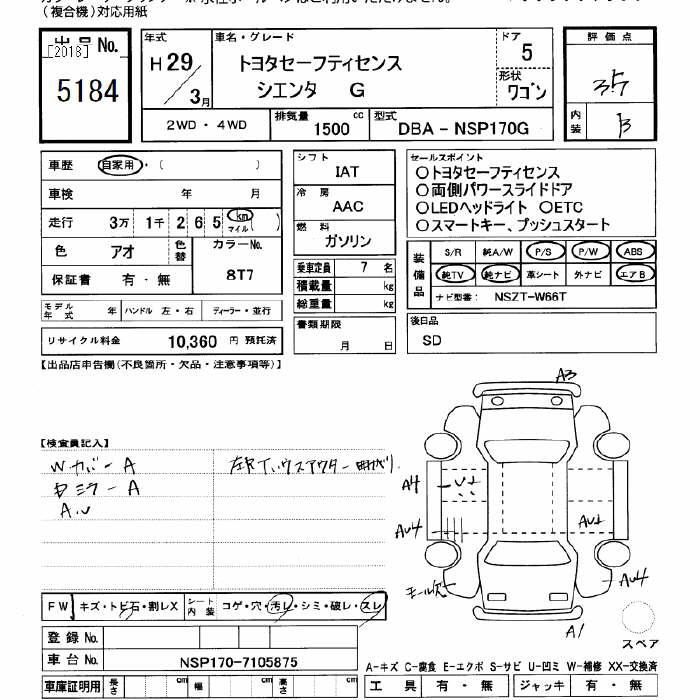 (複合機)対応用紙
出品No.
[2018]
5184
年式
H 29/3月
車名・グレード
トヨタセーフティセンス
シエンタ G
ドア
5
形状
ワゴン
評価点
3.5
内装
B
2WD・4WD
排気量
1500 cc
型式
DBA - NSP170G
車歴 自家用・( )
車検 年 月
走行 3万 1千 2 6 5 km マイル( )
色 アオ
色替
カラーNo.
8T7
保証書 有・無
モデル年式 年
ハンドル 左・右
ディーラー・並行
リサイクル料金 10,360 円 預託済
シフト
IAT
冷房
AAC
燃料
ガソリン
乗車定員 7 名
積載量 kg
総重量 kg
書類期限
月 日
セールスポイント
○トヨタセーフティセンス
○両側パワースライドドア
○LEDヘッドライト ○ETC
○スマートキー、プッシュスタート
装備品
S/R 純A/W P/S P/W ABS
純TV 純ナビ 革シート 外ナビ エアB
ナビ型番: NSZT-W66T
後日品
SD
【出品店申告欄(不良箇所・欠品・注意事項等)】
【検査員記入】
Wカバー A
ミラー A
A.U
A3
A4
AU4
AU2
AU4
A1
スペア
FW キズ・トビ石・割レX
シート内装 コゲ・穴・汚レ・シミ・破レ・スレ
登録 No.
車台 No. NSP170-7105875
車庫証明用 長さ cm 幅 cm 高さ cm
A-キズ C-腐食 E-エクボ S-サビ U-凹ミ W-補修 XX-交換済
工具 有・無 ジャッキ 有・無